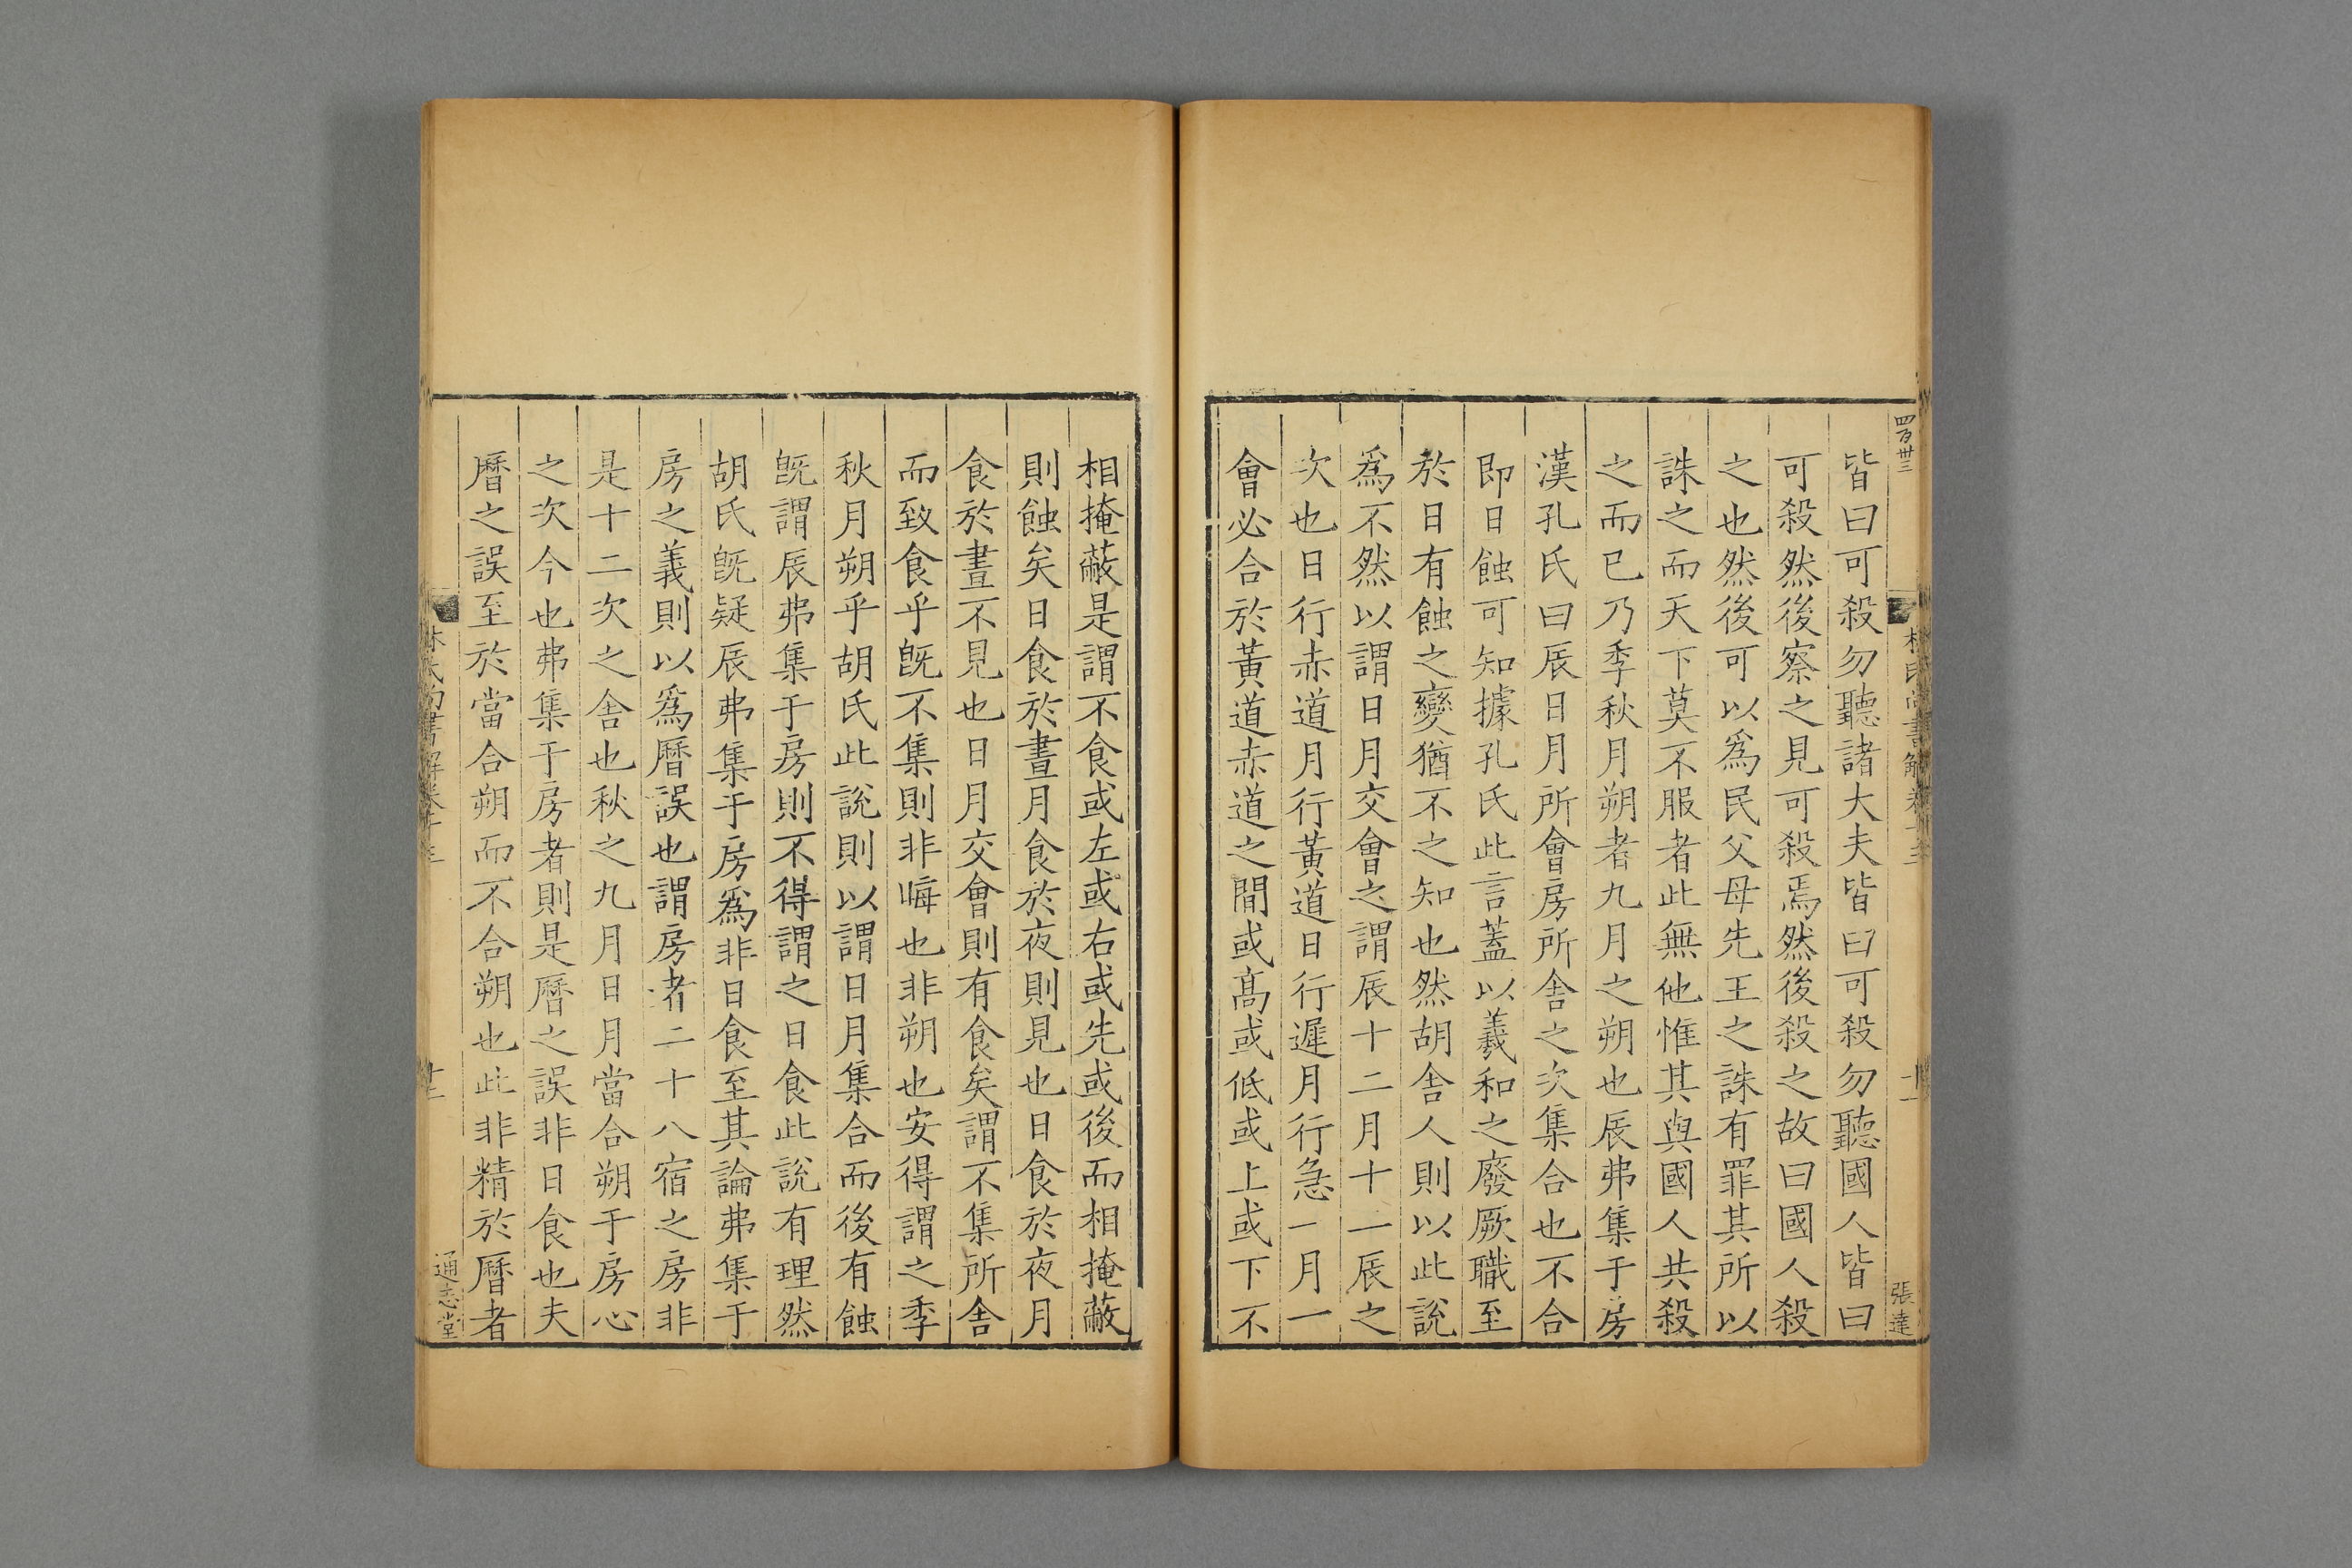 四百卅三
張達
皆曰可殺勿聽諸大夫皆曰可殺勿聽國人皆曰
可殺然後察之見可殺焉然後殺之故曰國人殺
之也然後可以爲民父母先王之誅有罪其所以
誅之而天下莫不服者此無他惟其與國人共殺
之而已乃季秋月朔者九月之朔也辰弗集于房
漢孔氏曰辰日月所會房所舍之次集合也不合
即日蝕可知據孔氏此言蓋以羲和之廢厥職至
於日有蝕之變猶不之知也然胡舍人則以此說
爲不然以謂日月交會之謂辰十二月十一辰之
次也日行赤道月行黃道日行遲月行急一月一
會必合於黃道赤道之間或高或低或上或下不
相掩蔽是謂不食或左或右或先或後而相掩蔽
則蝕矣日食於晝月食於夜則見也日食於夜月
食於晝不見也日月交會則有食矣謂不集所舍
而致食乎旣不集則非晦也非朔也安得謂之季
秋月朔乎胡氏此說則以謂日月集合而後有蝕
旣謂辰弗集于房則不得謂之日食此說有理然
胡氏旣疑辰弗集于房爲非日食至其論弗集于
房之義則以爲曆誤也謂房者二十八宿之房非
是十二次之舍也秋之九月日月當合朔于房心
之次今也弗集于房者則是曆之誤非日食也夫
曆之誤至於當合朔而不合朔也此非精於曆者
通志堂